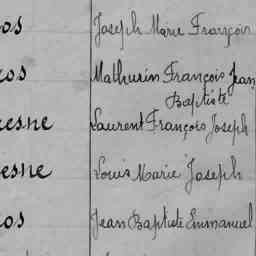 os Joseph Marie François
ros Mathurin François Jean
Baptiste
resne Laurent François Joseph
esne Louis Marie Joseph
os Jean Baptiste Emmanuel